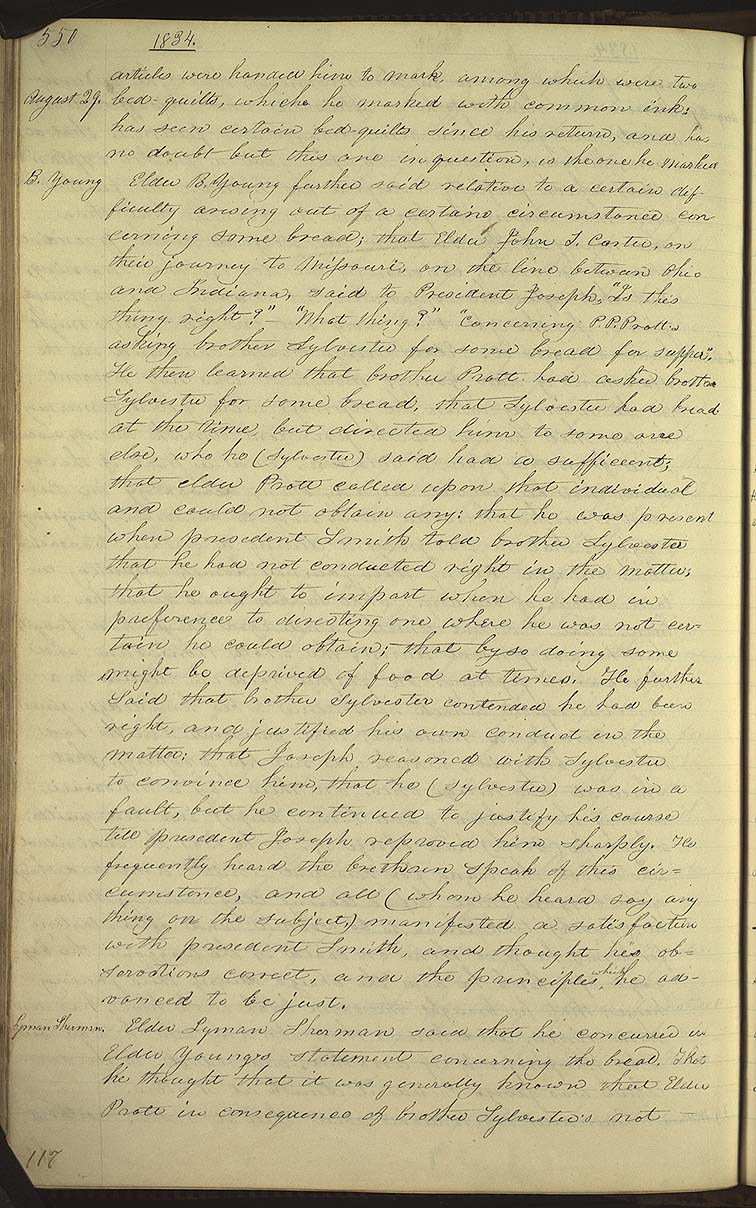 550
1834.
articles were handed him to mark, among which were two
August 29. bed-quilts, which he marked with common ink:
has seen certain bed-quilts since his return, and has
no doubt but this one in question, is the one he marked
B. Young Elder B. Young further said relative to a certain dif-
ficulty arising out of a certain circumstance con
cerning some bread; that Elder John S. Carter, on
their journey to Missouri, on the line between Ohio
and Indiana, said to President Joseph, "Is this
thing right?"— "What thing?" "Concerning P. P. Pratt's
asking brother Sylvester for some bread for supper".
He then learned that brother Pratt had asked brother
Sylvester for some bread, that Sylvester had bread
at the time, but directed him to some one
else, who he (Sylvester) said had a sufficient;
that elder Pratt called upon that individual
and could not obtain any: that he was present
when president Smith told brother Sylvester
that he had not conducted right in the matter;
that he ought to impart when he had in
preference to directing one where he was not cer=
tain he could obtain; that by so doing some
might be deprived of food at times. He further
said that brother Sylvester contended he had been
right, and justified his own conduct in the
matter: that Joseph reasoned with Sylvester
to convince him, that he (Sylvester) was in a
fault, but he continued to justify his course
till president Joseph reproved him sharply. He
frequently heard the brethren speak of this cir=
cumstance, and all (whom he heard say any
thing on the subject,) manifested a satisfaction
with president Smith, and thought his ob=
servations correct, and the principles, which he ad-
vanced to be just.
Lyman Sherman. Elder Lyman Sherman said that he concurred in
Elder Young's statement concerning the bread. That
he thought that it was generally known that Elder
Pratt in consequence of brother Sylvester's not
117